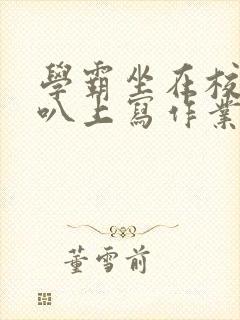 學霸坐在校
叭上寫作業
董雪前